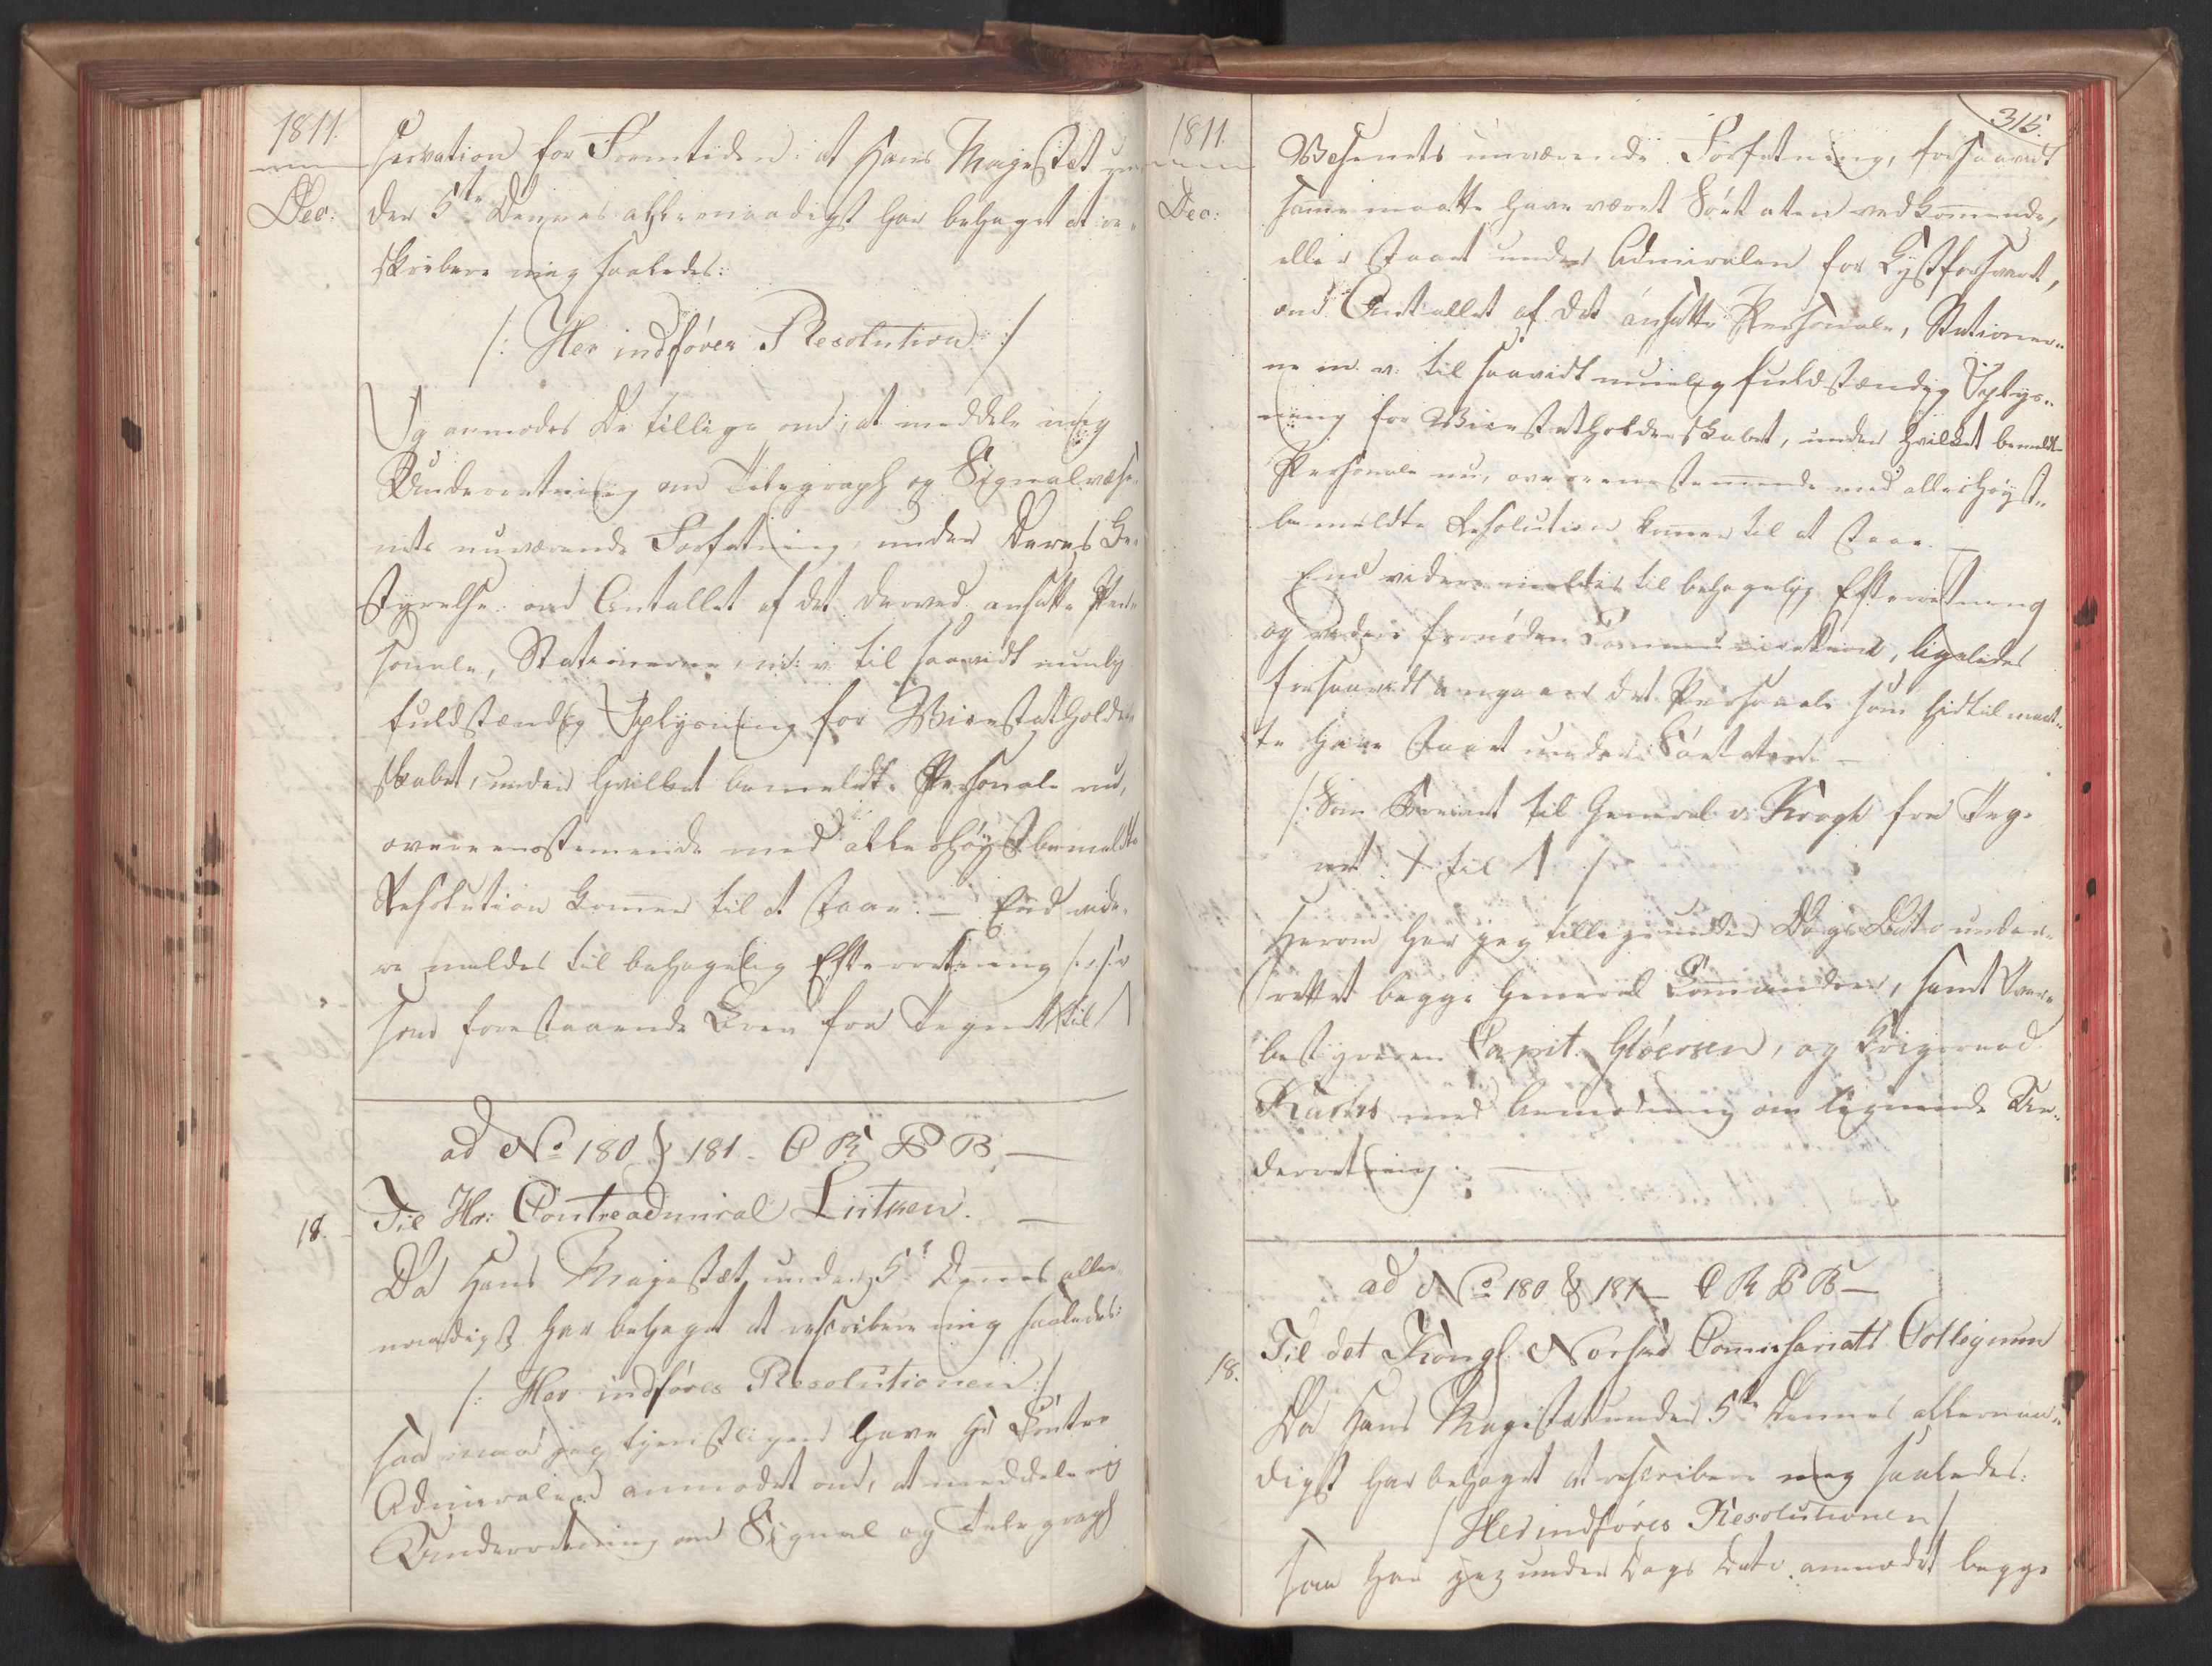 1811.
Dec:
servation for Fremtiden: at Hans Majestæt un
der 5te Dennes allernaadigst har behaget at re-
skribere mig saaledes:
/: Her indføres Resolution :/
Og anmodes De tillige om, at meddele mig
Underretning om Telegraph og Signalvæse-
nets nuværende Forfatning, under Deres Be-
styrelse, om Antallet af det derved ansatte Per-
sonale, Stationerne, m: v: til saavidt muelig
fuldstændig Oplysning for Viirstatholder-
skabet, under hvilket bemeldte Personale nu,
overeensstemmende med allerhøystbemeldte
Resolution kommer til at staae. — End vide-
re meldes til behagelig Efterretning /: s: v
som forestaaende Brev fra Tegnet X til
ad No 180 & 181 - C R P B. —
18.
Til Hr: Contreadmiral Lütken. —
Da Hans Majestæt under 5t Dennes aller-
naadigst har behaget at rescribere mig saaledes:
/: Her indføres Resolutionen :/
saa maae jeg tjenstligen have Hr Contre
Admiralen anmodet om, at meddele mig
Underretning om Signal og Telegraph
315.
1811.
Dec:
Wæsenets nuværende Forfatning, forsaavidt
samme maatte have været Søe Etaten vedkommende,
eller staaet under Admiralen for Kystforsvaret,
om Antallet af det ansatte Personale, Stationer-
ne m. v. til saavidt muelig fuldstændig Oplys-
ning for Viirstatholderskabet, under hvilket bemeldte
Personale nu, overeensstemmende med allerhøyst-
bemeldte Resolution kommer til at staae. —
End videre meldes til behagelig Efterretning
og videre fornøden Communication, ligeledes
forsaavidt angaaer det Personale som hidtil maat-
te have staaet under Søe Etaten. —
/: Som Brevet til General v. Krogh fra Teg-
net X til
Herom har jeg tillige under Dags Dato under-
rettet begge General Commandoer, samt
bestyreren Capit. Gløersen, og Krigsraad
med Anmodning om lignende Un-
derretning. —
ad No 180 & 181 — C R P B —
18.
Til det Kongl. Norske Commissariats Collegium
Da Hans Majestæt under 5te Dennes allernaa-
digst har behaget at rescribere mig saaledes:
/ Her indføres Resolutionen /
saa har jeg under Dags Dato anmodet begge